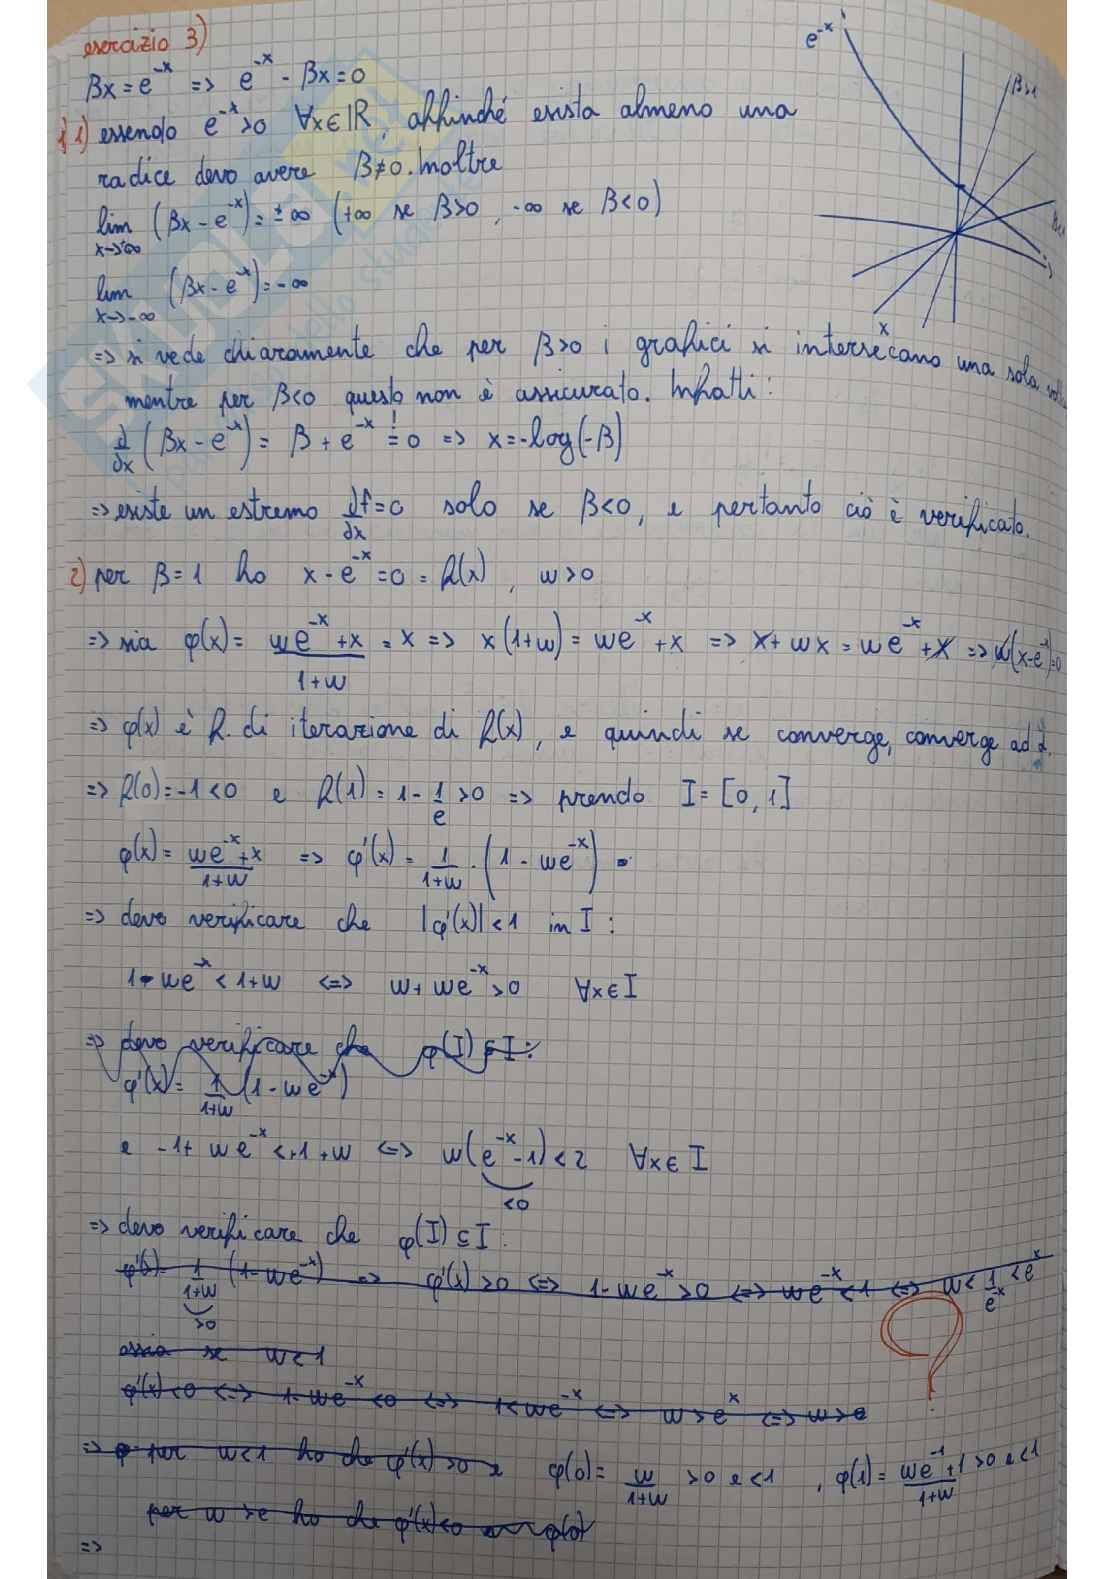 esercizio 3)
e^-x
βx = e^-x => e^-x - βx = 0
β>1
1) essendo e^-x>0 ∀x∈ℝ, affinché esista almeno una
radice devo avere β≠0. Inoltre
lim x->+∞ (βx - e^-x) = ±∞ (+∞ se β>0, -∞ se β<0)
lim x->-∞ (βx - e^-x) = -∞
x
=> si vede chiaramente che per β>0 i grafici si intersecano una sola volta
mentre per β<0 questo non è assicurato. Infatti:
∂/∂x (βx - e^-x) = β + e^-x != 0 => x = -log(-β)
=> esiste un estremo ∂f/∂x = 0 solo se β<0, e pertanto ciò è verificato.
2) per β = 1 ho x - e^-x = 0 = f(x), w>0
=> sia φ(x) = (we^-x + x)/(1+w) = x => x(1+w) = we^-x + x => x + wx = we^-x + x => w(x-e^-x)=0
=> φ(x) è f. di iterazione di f(x), e quindi se converge, converge ad α.
=> f(0) = -1<0 e f(1) = 1 - 1/e >0 => prendo I = [0,1]
φ(x) = (we^-x + x)/(1+w) => φ'(x) = 1/(1+w) · (1 - we^-x)
=> devo verificare che |φ'(x)|<1 in I:
1 - we^-x < 1+w <=> w + we^-x >0 ∀x∈I
=> devo verificare che φ(I)⊆I:
φ'(x) = 1/(1+w) (1 - we^-x)
e -1+ we^-x <+1+w <=> w(e^-x -1)<2 ∀x∈I
<0
=> devo verificare che φ(I)⊆I:
φ'(x) = 1/(1+w) (1 - we^-x) => φ'(x)>0 <=> 1 - we^-x >0 <=> we^-x <1 <=> w< 1/e^-x <e^x
>0
ossia se w<1
?
φ'(x)<0 <=> 1 - we^-x <0 <=> 1<we^-x <=> w>e^x <=> w>e
=> per w<1 ho che φ'(x)>0 e φ(0) = w/(1+w) >0 e <1, φ(1) = (we^-1 + 1)/(1+w) >0 e <1
per w >e ho che φ'(x)<0 φ(0)
=>